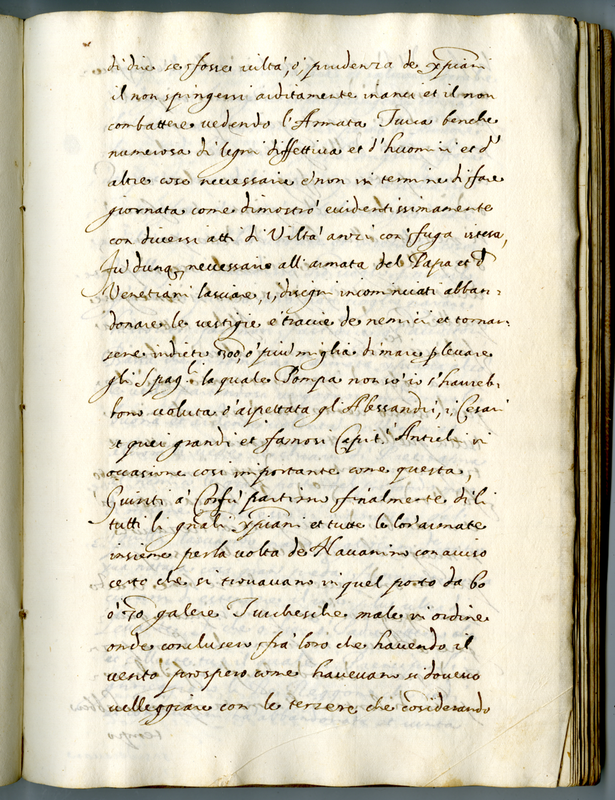 di dire se fosse viltà, ò, prudenza de xpiani
il non spingersi arditamente inanti et il non
combattere vedendo l'Armata Turca benche
numerosa di legni diffettiva et d'huomini et d'
altre cose necessarie e non in termine di fare
giornata come dimostrò evidentissimamente
con diversi atti di Viltà anzi con fuga istessa,
fù dunq necessario all'armata del Papa et d
Venetiani lasciare, i, disegni incominciati abban-
donare le vestigie e traccie de nemici et tornar-
sene indietro 300, ò più miglia di mare p levare
gli Spag.li la quale Pompa non sò io s'havreb-
bono voluta ò aspettata gl'Alessandri, i, Cesari
et quei grandi et famosi Capit.i Antichi in
occasione cosi importante come questa,
Giunti à Corfù partirno finalmente di li
tutti li gnali xpiani et tutte le lor armate
insieme per la volta de Navarino con aviso
certo che si trovavano in quel porto da 60
ò 70 galere Turchesche male in ordine
onde conclusero frà loro che havendo il
vento prospero come havevano si dovesse
velleggiare con le terzere, che considerando